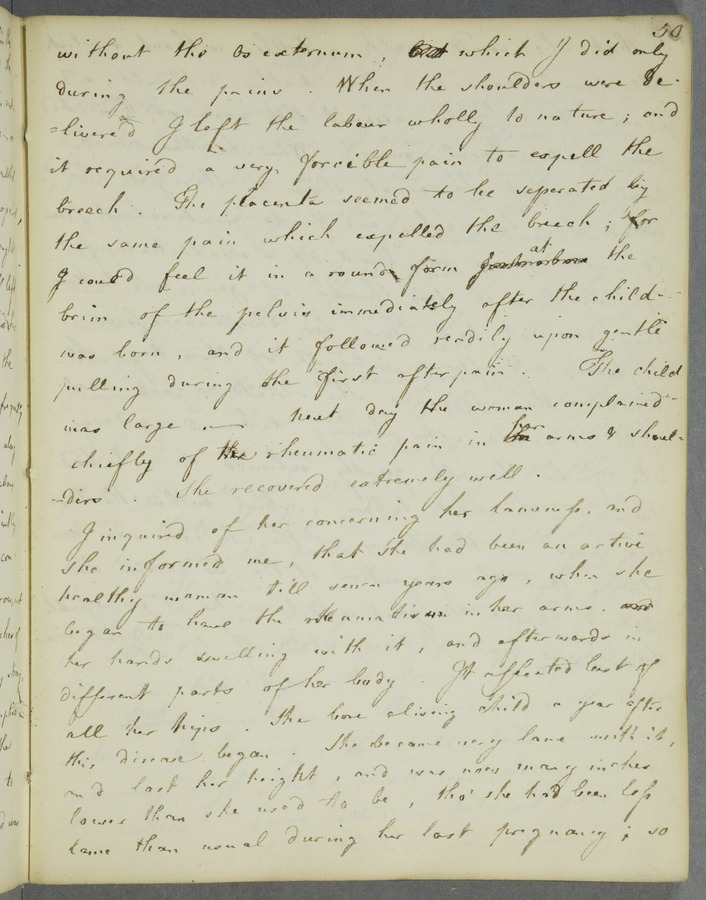 50
without the Os externum, which I did only
during the pains. When the shoulders were de-
=livered I left the labour wholly to nature; and
it required a very forcible pain to expell the
breech. The placenta seemed to be seperated by
the same pain which expelled the breech; for
I could feel it in a round form at the
brim of the pelvis immediately after the child
was born, and it followed readily upon gentle
pulling during the first after pain. The child
was large — next day the woman complained
chiefly of the rheumatic pain in her arms & shoul-
-ders. She recovered extremely well.
I inquired of her concerning her lameness, and
she informed me, that she had been an active
healthy woman till seven years ago, when she
began to have the rheumatism in her arms.
her hands swelling with it, and afterwards in
different parts of her body. It affected last of
all her hips. She bore a living child a year after
this disease began. She became very lame with it,
and lost her height, and was now many inches
lower than she used to be, tho' she had been less
lame than usual during her last pregnancy; so